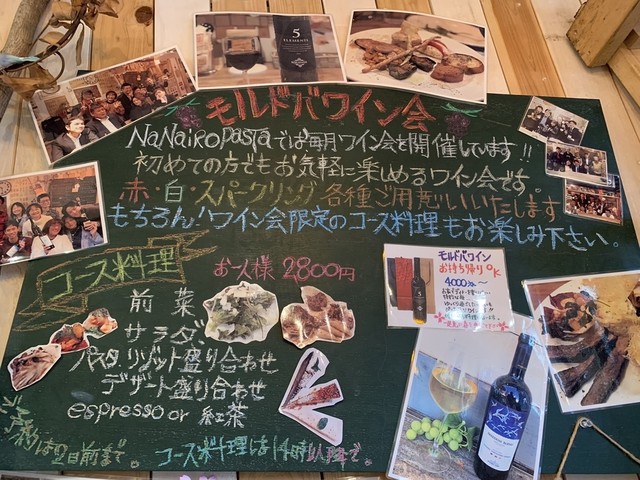 5
ELEMENTS
モルドバワイン会
NaNairo pastaでは毎月ワイン会を開催しています!!
初めての方でもお気軽に楽しめるワイン会です。
赤・白・スパークリング各種ご用意いたします
もちろん!ワイン会限定のコース料理もお楽しみ下さい。
コース料理
お一人様 2800円
前菜
サラダ
パスタリゾット盛り合わせ
デザート盛り合わせ
espresso or 紅茶
は2日前まで。
コース料理は14時以降で。
モルドバワイン
お持ち帰りOK
4000